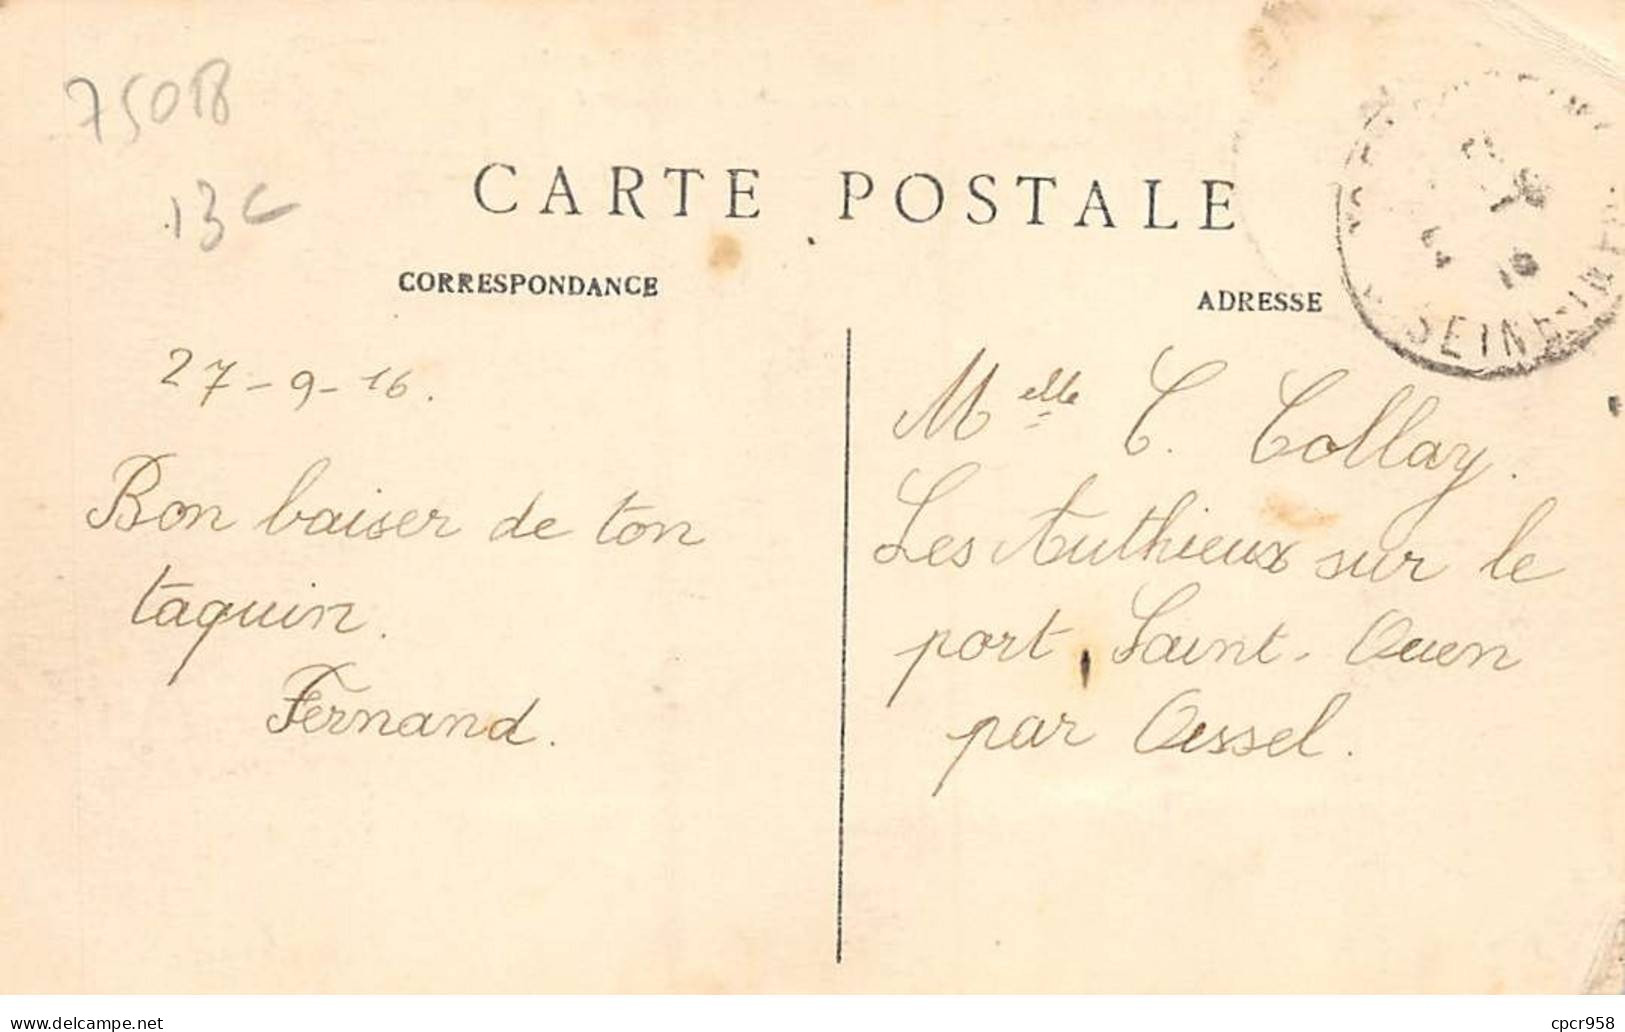 75018
13c
CARTE POSTALE
CORRESPONDANCE
ADRESSE
SEINE-INFRE
27-9-16.
Bon baiser de ton
taquin.
Fernand.
Melle C. Collay.
Les Authieux sur le
port Saint-Ouen
par Oissel.
delcampe.net
cpcr958